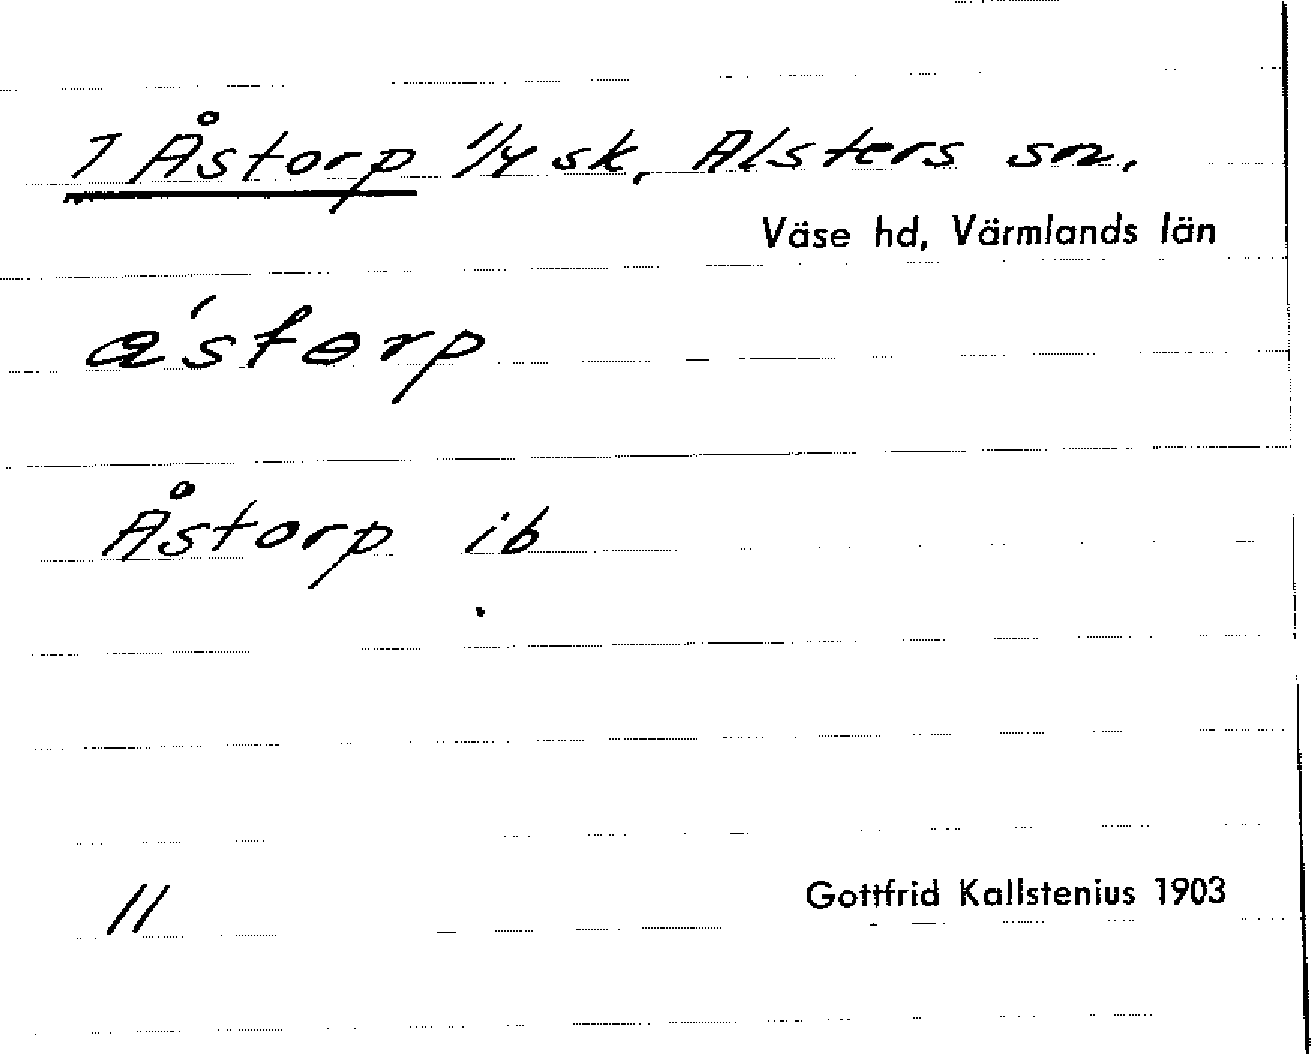 1 Åstorp 1/4 sk, Alsters sn,
Väse hd, Värmlands län
a'storp
Åstorp ib
11
Gottfrid Kallstenius 1903